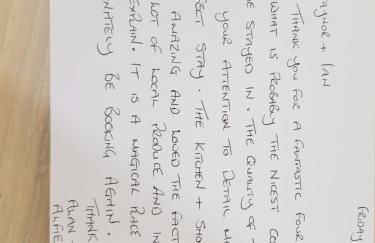 FRIDAY
AYNOR + IAN
THANK YOU FOR A FANTASTIC FOUR
WHAT IS PROBABLY THE NICEST CO
E STAYED IN. THE QUALITY OF
YOUR ATTENTION TO DETAIL MA
FECT STAY. THE KITCHEN + SHO
AMAZING AND LOVED THE FACT
LOT OF LOCAL PRODUCE AND IN
EXPLAIN. IT IS A MAGICAL PLACE
NATELY BE BOOKING AGAIN.
THANK
ALAN
ALFIE